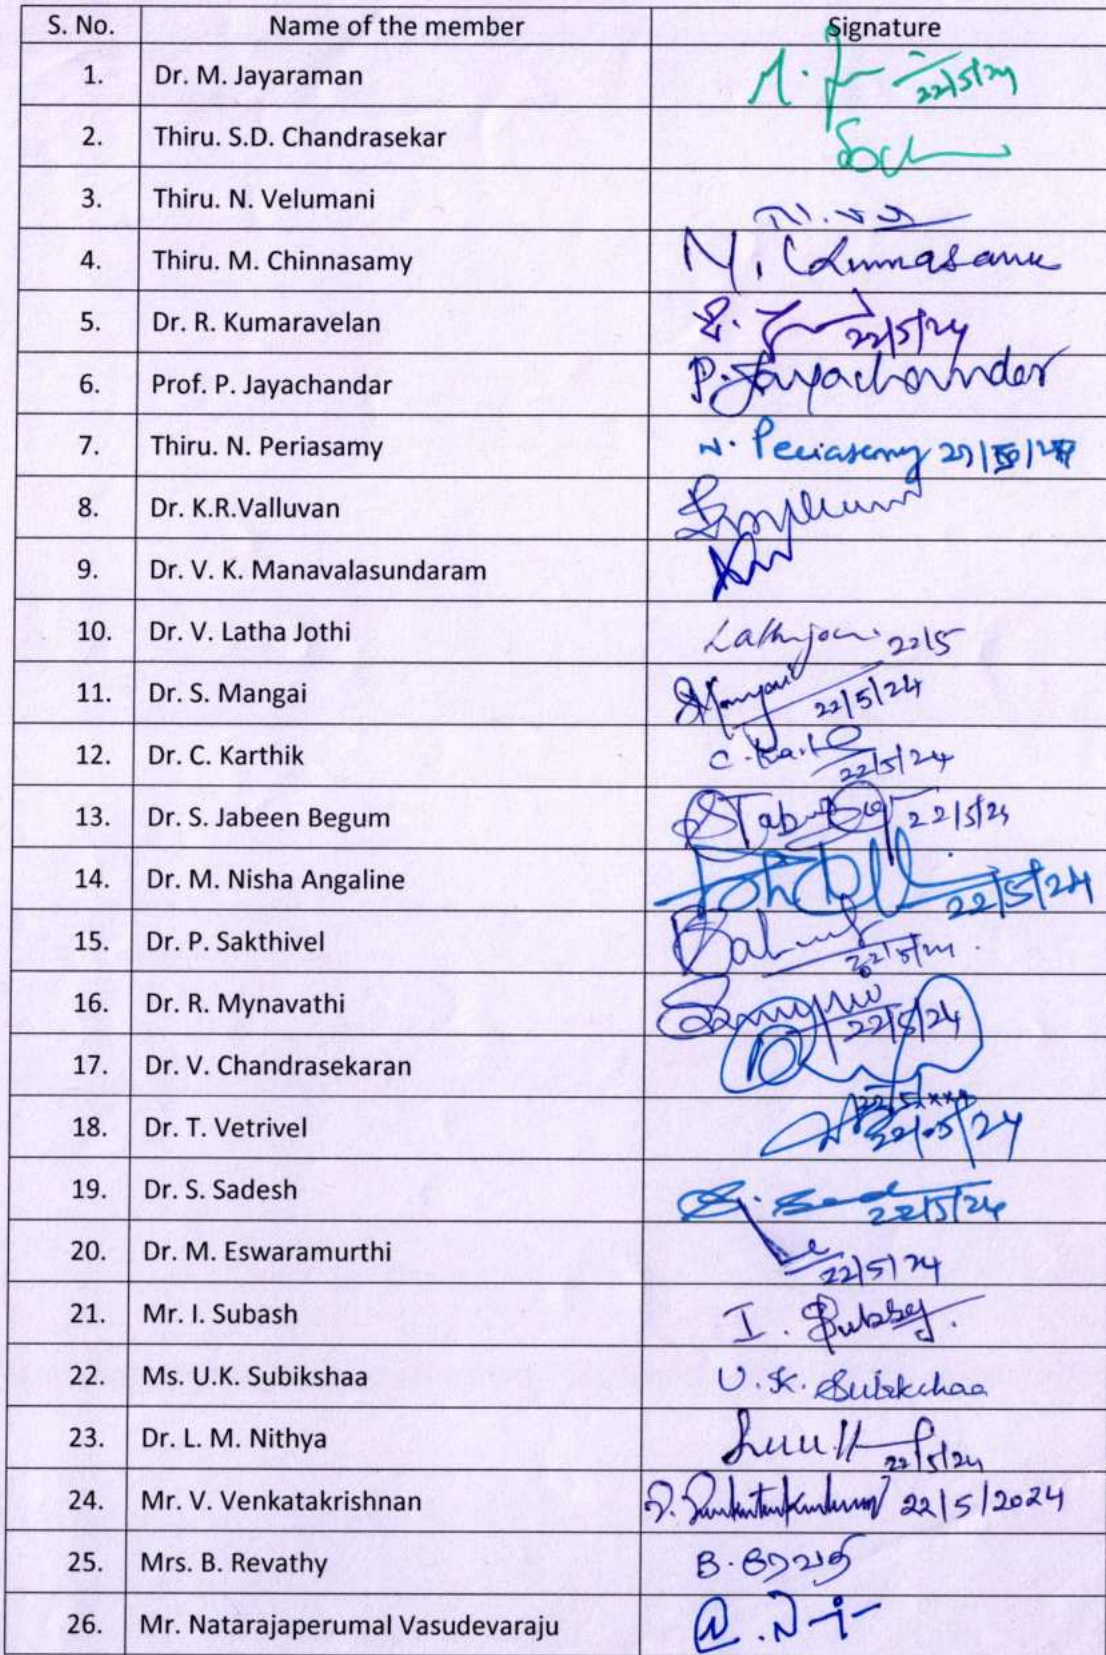 S. No. Name of the member Signature
1. Dr. M. Jayaraman 22/5/24
2. Thiru. S.D. Chandrasekar
3. Thiru. N. Velumani
4. Thiru. M. Chinnasamy
5. Dr. R. Kumaravelan 22/5/24
6. Prof. P. Jayachandar P. Jayachandar
7. Thiru. N. Periasamy N. Periasamy
8. Dr. K.R.Valluvan
9. Dr. V. K. Manavalasundaram
10. Dr. V. Latha Jothi 22/5
11. Dr. S. Mangai 22/5/24
12. Dr. C. Karthik 22/5/24
13. Dr. S. Jabeen Begum 22/5/24
14. Dr. M. Nisha Angaline 22/5/24
15. Dr. P. Sakthivel 22/5/24
16. Dr. R. Mynavathi 22/5/24
17. Dr. V. Chandrasekaran
18. Dr. T. Vetrivel 22/05/24
19. Dr. S. Sadesh 22/5/24
20. Dr. M. Eswaramurthi 22/5/24
21. Mr. I. Subash I. Subash
22. Ms. U.K. Subikshaa U.K. Subikshaa
23. Dr. L. M. Nithya 22/5/24
24. Mr. V. Venkatakrishnan 22/5/2024
25. Mrs. B. Revathy B. ரேவதி
26. Mr. Natarajaperumal Vasudevaraju